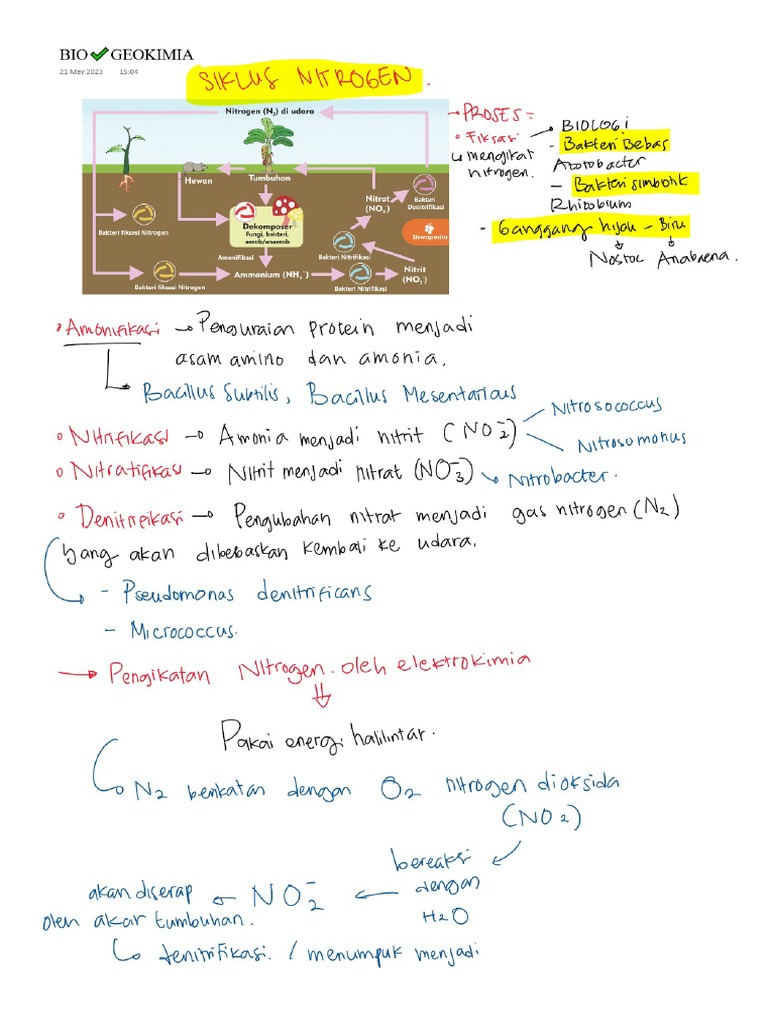 BIO GEOKIMIA
21 May 2023 15:04
SIKLUS NITROGEN.
Nitrogen (N₂) di udara
Hewan
Tumbuhan
Nitrat
(NO₃⁻)
Bakteri
Denitrifikasi
Bakteri fiksasi Nitrogen
Dekomposer
Fungi, bakteri,
aerob/anaerob
Siswapedia
Amonifikasi
Bakteri Nitrifikasi
Bakteri fiksasi Nitrogen
Ammonium (NH₄⁺)
Bakteri Nitrifikasi
Nitrit
(NO₂⁻)
→ PROSES =
• Fiksasi
↳ mengikat
nitrogen.
• BIOLOGI
- Bakteri Bebas
Azotobacter
- Bakteri simbotik
Rhizobium
- Ganggang hijau - Biru
Nostoc Anabaena.
• Amonifikasi → Penguraian protein menjadi
asam amino dan amonia.
Bacillus Subtilis, Bacillus Mesentarious
• Nitrifikasi → Amonia menjadi nitrit (NO₂⁻)
Nitrosococcus
Nitrosomonus
• Nitratifikasi → Nitrit menjadi nitrat (NO₃⁻) → Nitrobacter.
• Denitrifikasi → Pengubahan nitrat menjadi gas nitrogen (N₂)
yang akan dibebaskan kembali ke udara.
- Pseudomonas denitrificans
- Micrococcus.
→ Pengikatan Nitrogen oleh elektrokimia
Pakai energi halilintar.
N₂ berikatan dengan O₂ nitrogen dioksida
(NO₂)
bereaksi
dengan
H₂O
← NO₂⁻ ←
akan diserap
oleh akar tumbuhan.
↳ denitrifikasi / menumpuk menjadi